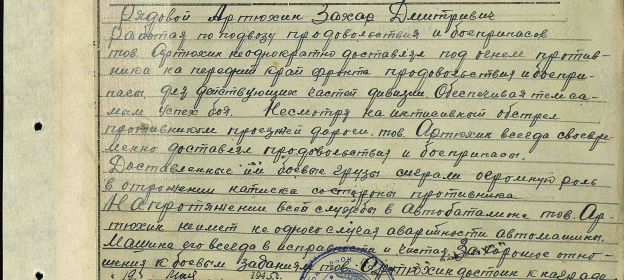 Рядовой Артюхин Захар Дмитриевич
работая по подвозу продовольствия и боеприпасов
тов. Артюхин неоднократно доставлял под огнем против-
ника на передний край фронта продовольствия и боепри-
пасы, для действующих частей дивизии обеспечивая тем са-
мым успех боя. Несмотря на интисивный обстрел
противником проезжей дороги. тов. Артюхин всегда своевре-
менно доставлял продовольствия и боеприпасы.
Доставленные им боевые грузы сыграли огромную роль
в отрожении натиска со стороны противника.
На протяжении всей службы в Автобаталионе тов. Ар-
тюхин неимеет не одного случая аварийности автомашины.
Машина его всегда в исправности и чистая. За хорошое отно-
шения к боевым заданиям тов. Артюхин достоин к награде
мая